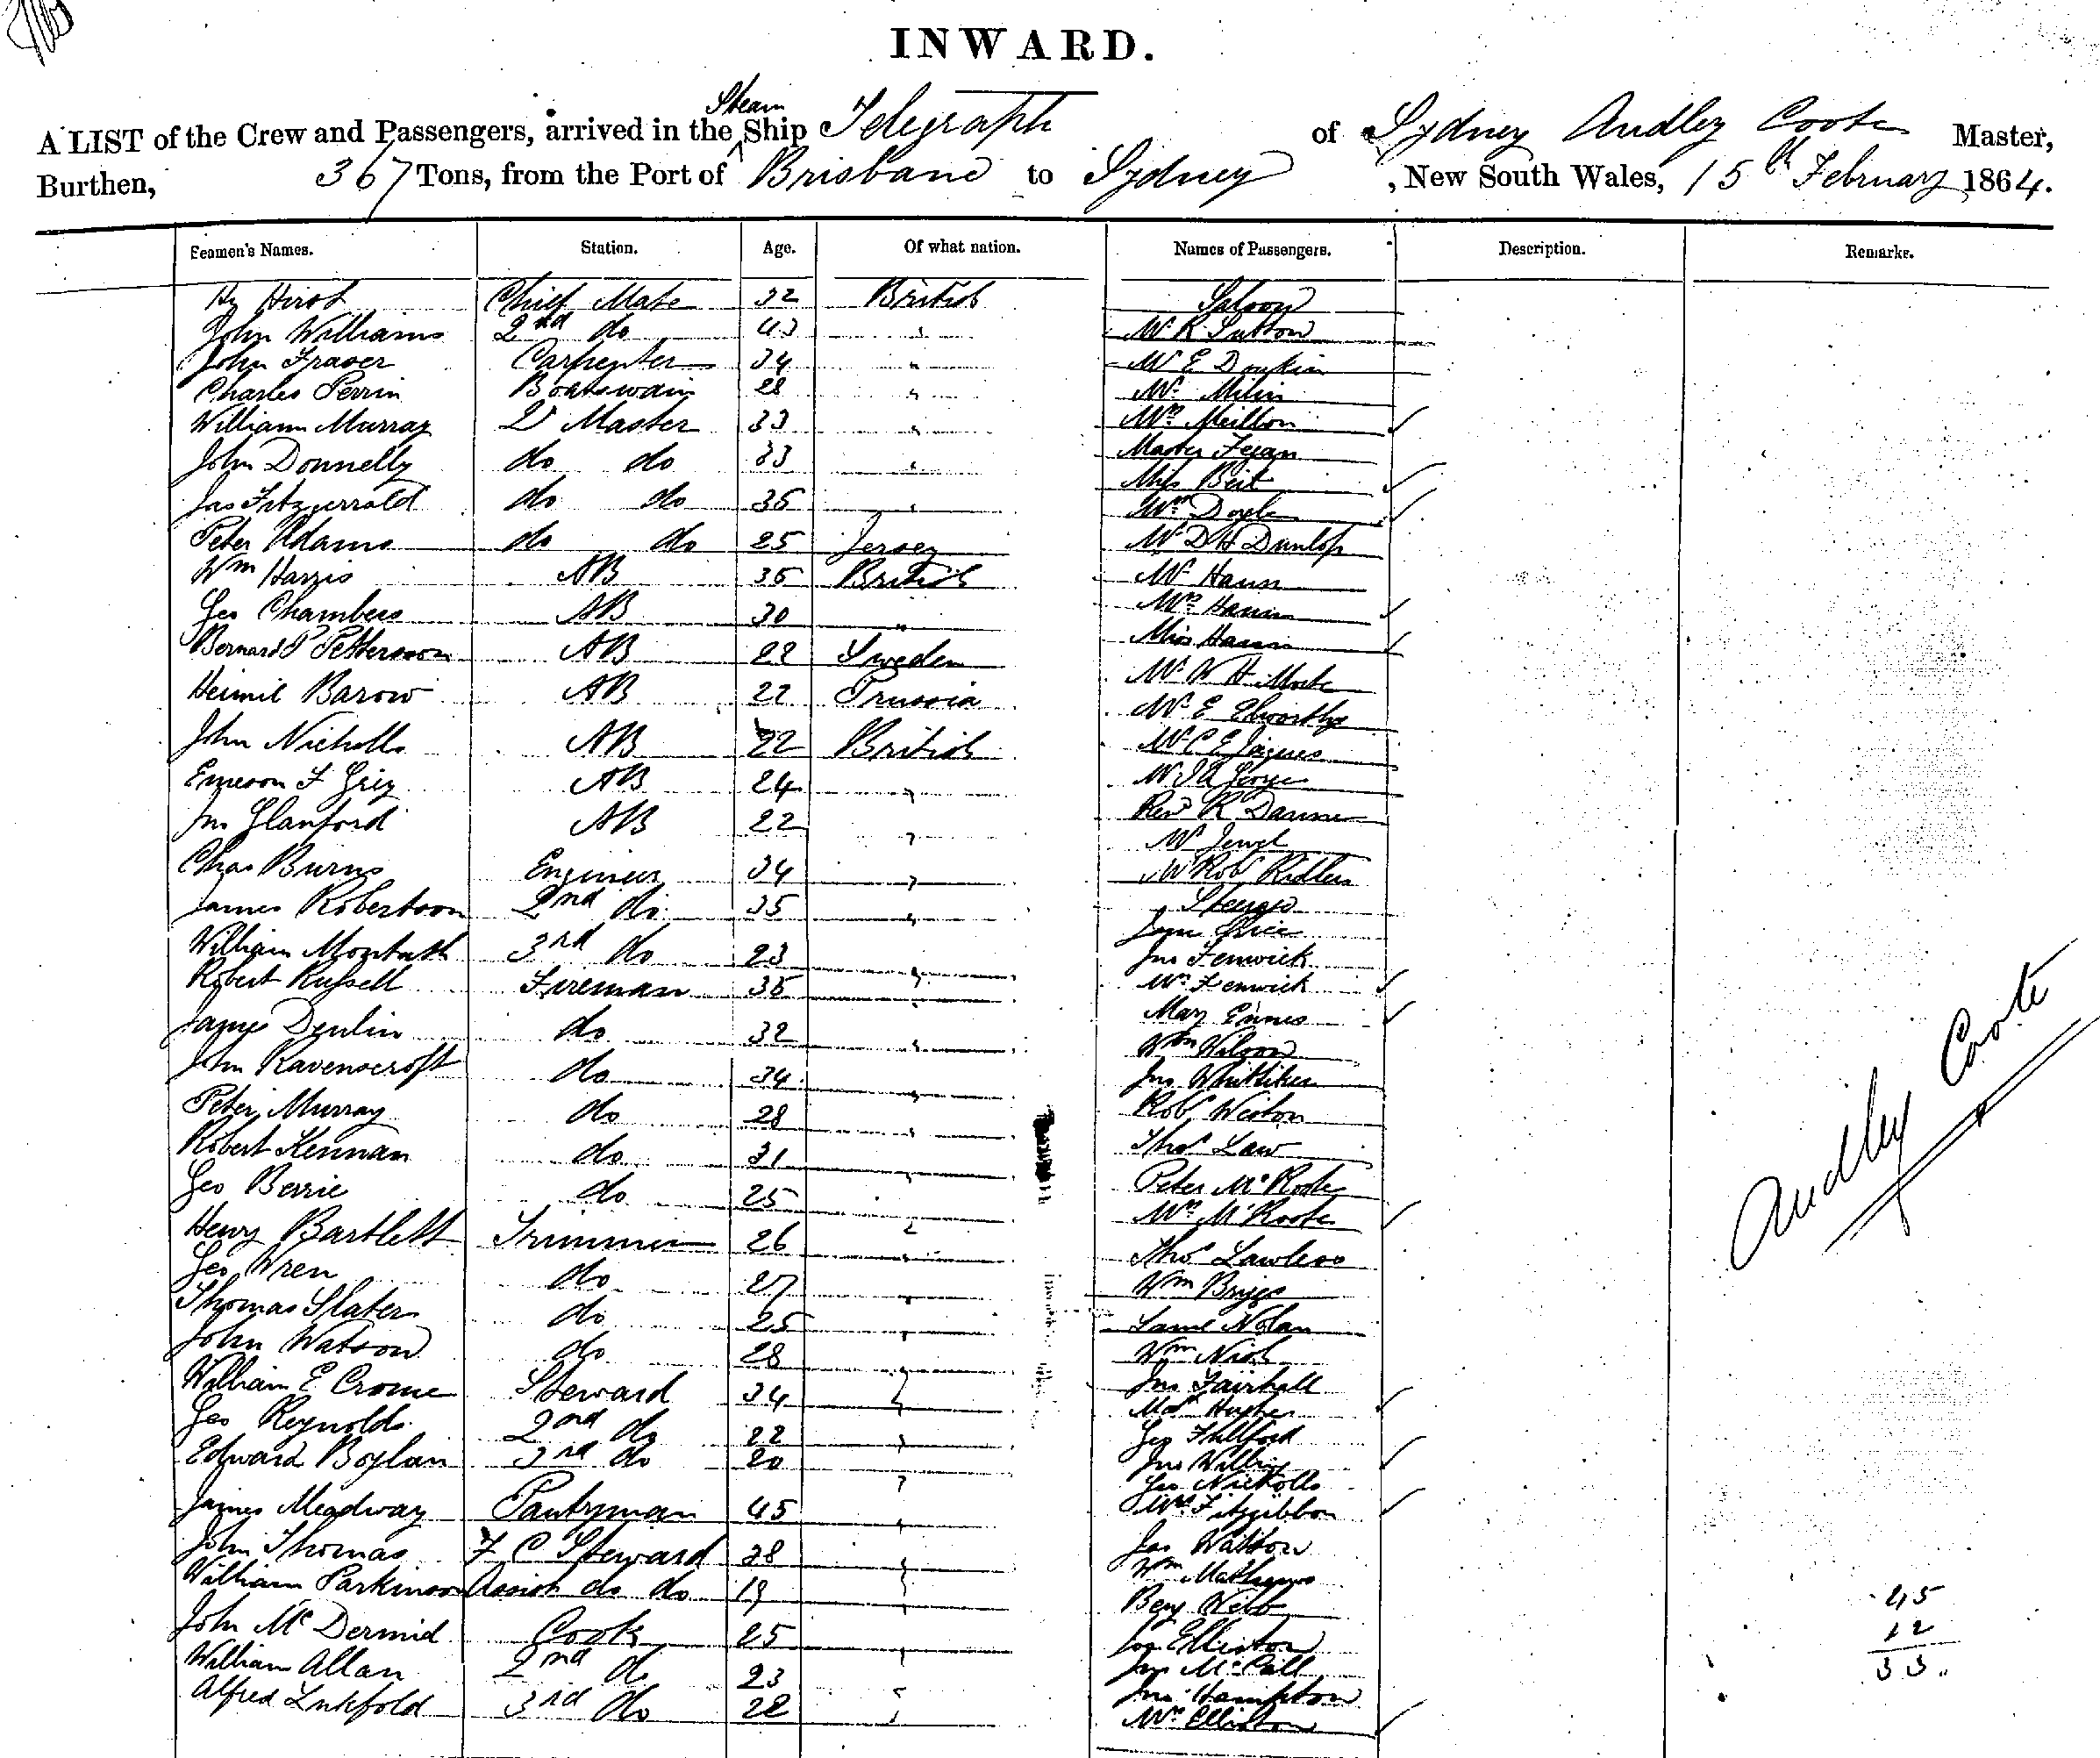 INWARD.
A LIST of the Crew and Passengers, arrived in the Steam Ship Telegraph of Sydney Audley Coote Master,
Burthen, 367 Tons, from the Port of Brisbane to Sydney, New South Wales, 15th February 1864.
Seamen's Names. Station. Age. Of what nation. Names of Passengers. Description. Remarks.
Hy Hirst Chief Mate 32 British Saloon
John Williams 2nd do 43 " Mr R Sutton
John Fraser Carpenter 34 " Mr E Donkin
Charles Perrin Boatswain 28 " Mr
William Murray Qr Master 33 " Mrs Meillon
John Donnelly do do 33 " Master Fegan
Jas Fitzgerrald do do 35 " Miss Beit
Peter Adams do do 25 Jersey Mrs Doyle
Wm Harris AB 35 British Mr D H Dunlop
Geo Chambers AB 30 " Mr Hann
Bernard P Pettersson AB 22 Sweden Mrs Hann
Heimil Barow AB 22 Prussia Miss Hann
John Nicholls AB 22 British Mr W H
Emerson F Grey AB 24 " Mr E Elworthy
Jno Glanford AB 22 " Mr C E Jaques
Chas Burns Engineer 34 " Mr J A
James Robertson 2nd do 35 " Revd R
William Monteath 3rd do 23 " Mr
Robert Russell Fireman 35 " Mr Robt Ridler
James Devlin do 32 " Steerage
John Ravenscroft do 34 " Jane Price
Peter Murray do 28 " Jno Fenwick
Robert Kennan do 31 " Mrs Fenwick
Geo Berrie do 25 " Mary Ennes
Henry Bartlett Trimmer 26 " Wm Wilson
Geo Wren do 27 " Jno Whittiker
Thomas Slater do 25 " Robt Weston
John Watson do 28 " Thos Law
William E Crome Steward 34 " Peter McRoote
Geo Reynolds 2nd do 22 " Mrs McRoote
Edward Boylan 3rd do 20 " Thos Lawless
James Meadway Pantryman 45 " Wm Briggs
John Thomas F C Steward 28 " Saml Nolan
William Parkinson Assist do do 19 " Wm
John McDermid Cook 25 " Jno Fairhall
William Allan 2nd do 23 " Hughes
Alfred 3rd do 22 " Geo
Jno
Geo Nicholls
Mrs Fitzgibbon
Jas Watson
Wm Mathews
Benj Webb
Elliston
Jno McCall
Jno Hampton
Mrs Elliston
Audley Coote
45
12
33